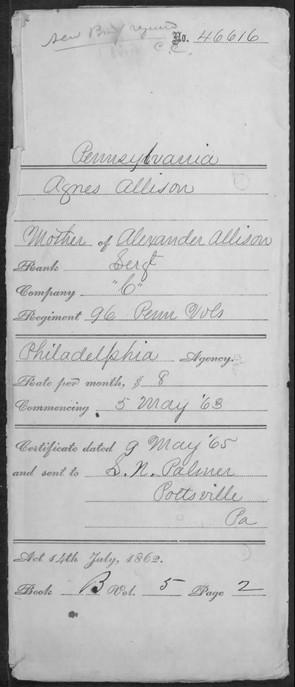 new Brief required
No. 46616
C. C.
Pennsylvania
Agnes Allison
Mother of Alexander Allison
Rank Sergt
Company "C"
Regiment 96 Penn Vols
Philadelphia Agency.
Rate per month, $ 8
Commencing 5 May '63
Certificate dated 9 May '65
and sent to S. N. Palmer
Pottsville
Pa
Act 14th July, 1862.
Book B Vol. 5 Page 2